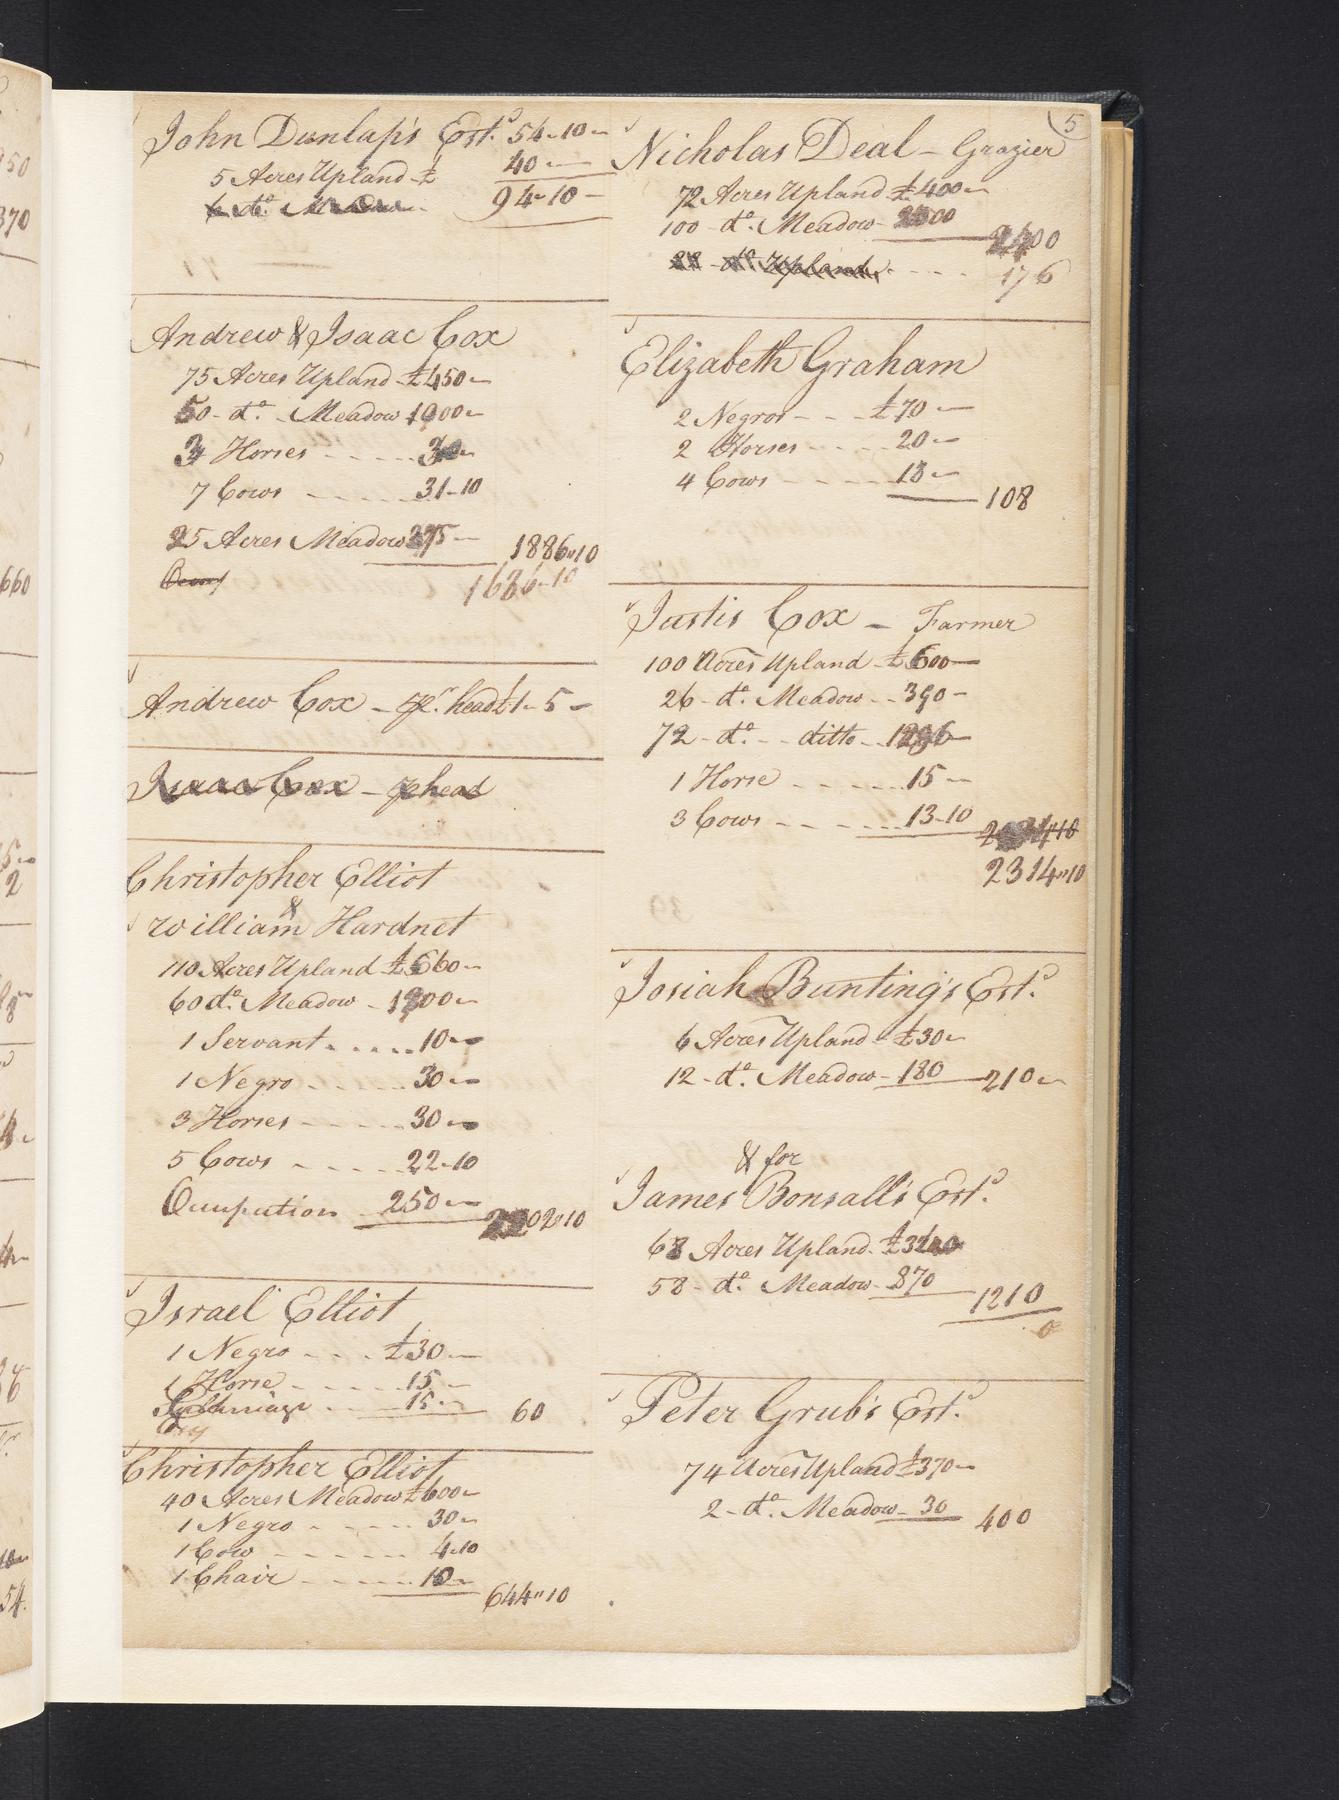 5
John Dunlap's Est.ᵈ 54-10-
5 Acres Upland £ 40
94-10-
Andrew & Isaac Cox
75 Acres Upland £450
50-dº. Meadow 1000
3 Horses 30
7 Cows 31-10
25 Acres Meadow 375
1886"10
1686-10
Andrew Cox - pr. head £1-5-
Isaac Cox - p head
Christopher Elliot
&
William Hardnet
110 Acres Upland £660
60 dº. Meadow 1200
1 Servant 10
1 Negro 30
3 Horses 30
5 Cows 22-10
Occupation 250
2202"10
Israel Elliot
1 Negro £30
1 Horse 15
15
60
Christopher Elliot
40 Acres Meadow £600
1 Negro 30
1 Cow 4-10
1 Chair 10
644"10
Nicholas Deal - Grazier
72 Acres Upland £400
100 - dº. Meadow 2000
2400
88 - dº Upland
176
Elizabeth Graham
2 Negros £70
2 Horses 20
4 Cows 18
108
Justis Cox - Farmer
100 Acres Upland £600
26 - dº. Meadow 390
72 - dº. ditto 1296
1 Horse 15
3 Cows 13-10
2314"10
Josiah Bunting's Est.ᵈ
6 Acres Upland £30
12 - dº. Meadow 180 210
& for
James Bonsall's Est.ᵈ
68 Acres Upland £340
58 - dº. Meadow 870
1210
0
Peter Grub's Est.ᵈ
74 Acres Upland £370
2 - dº. Meadow 30 400